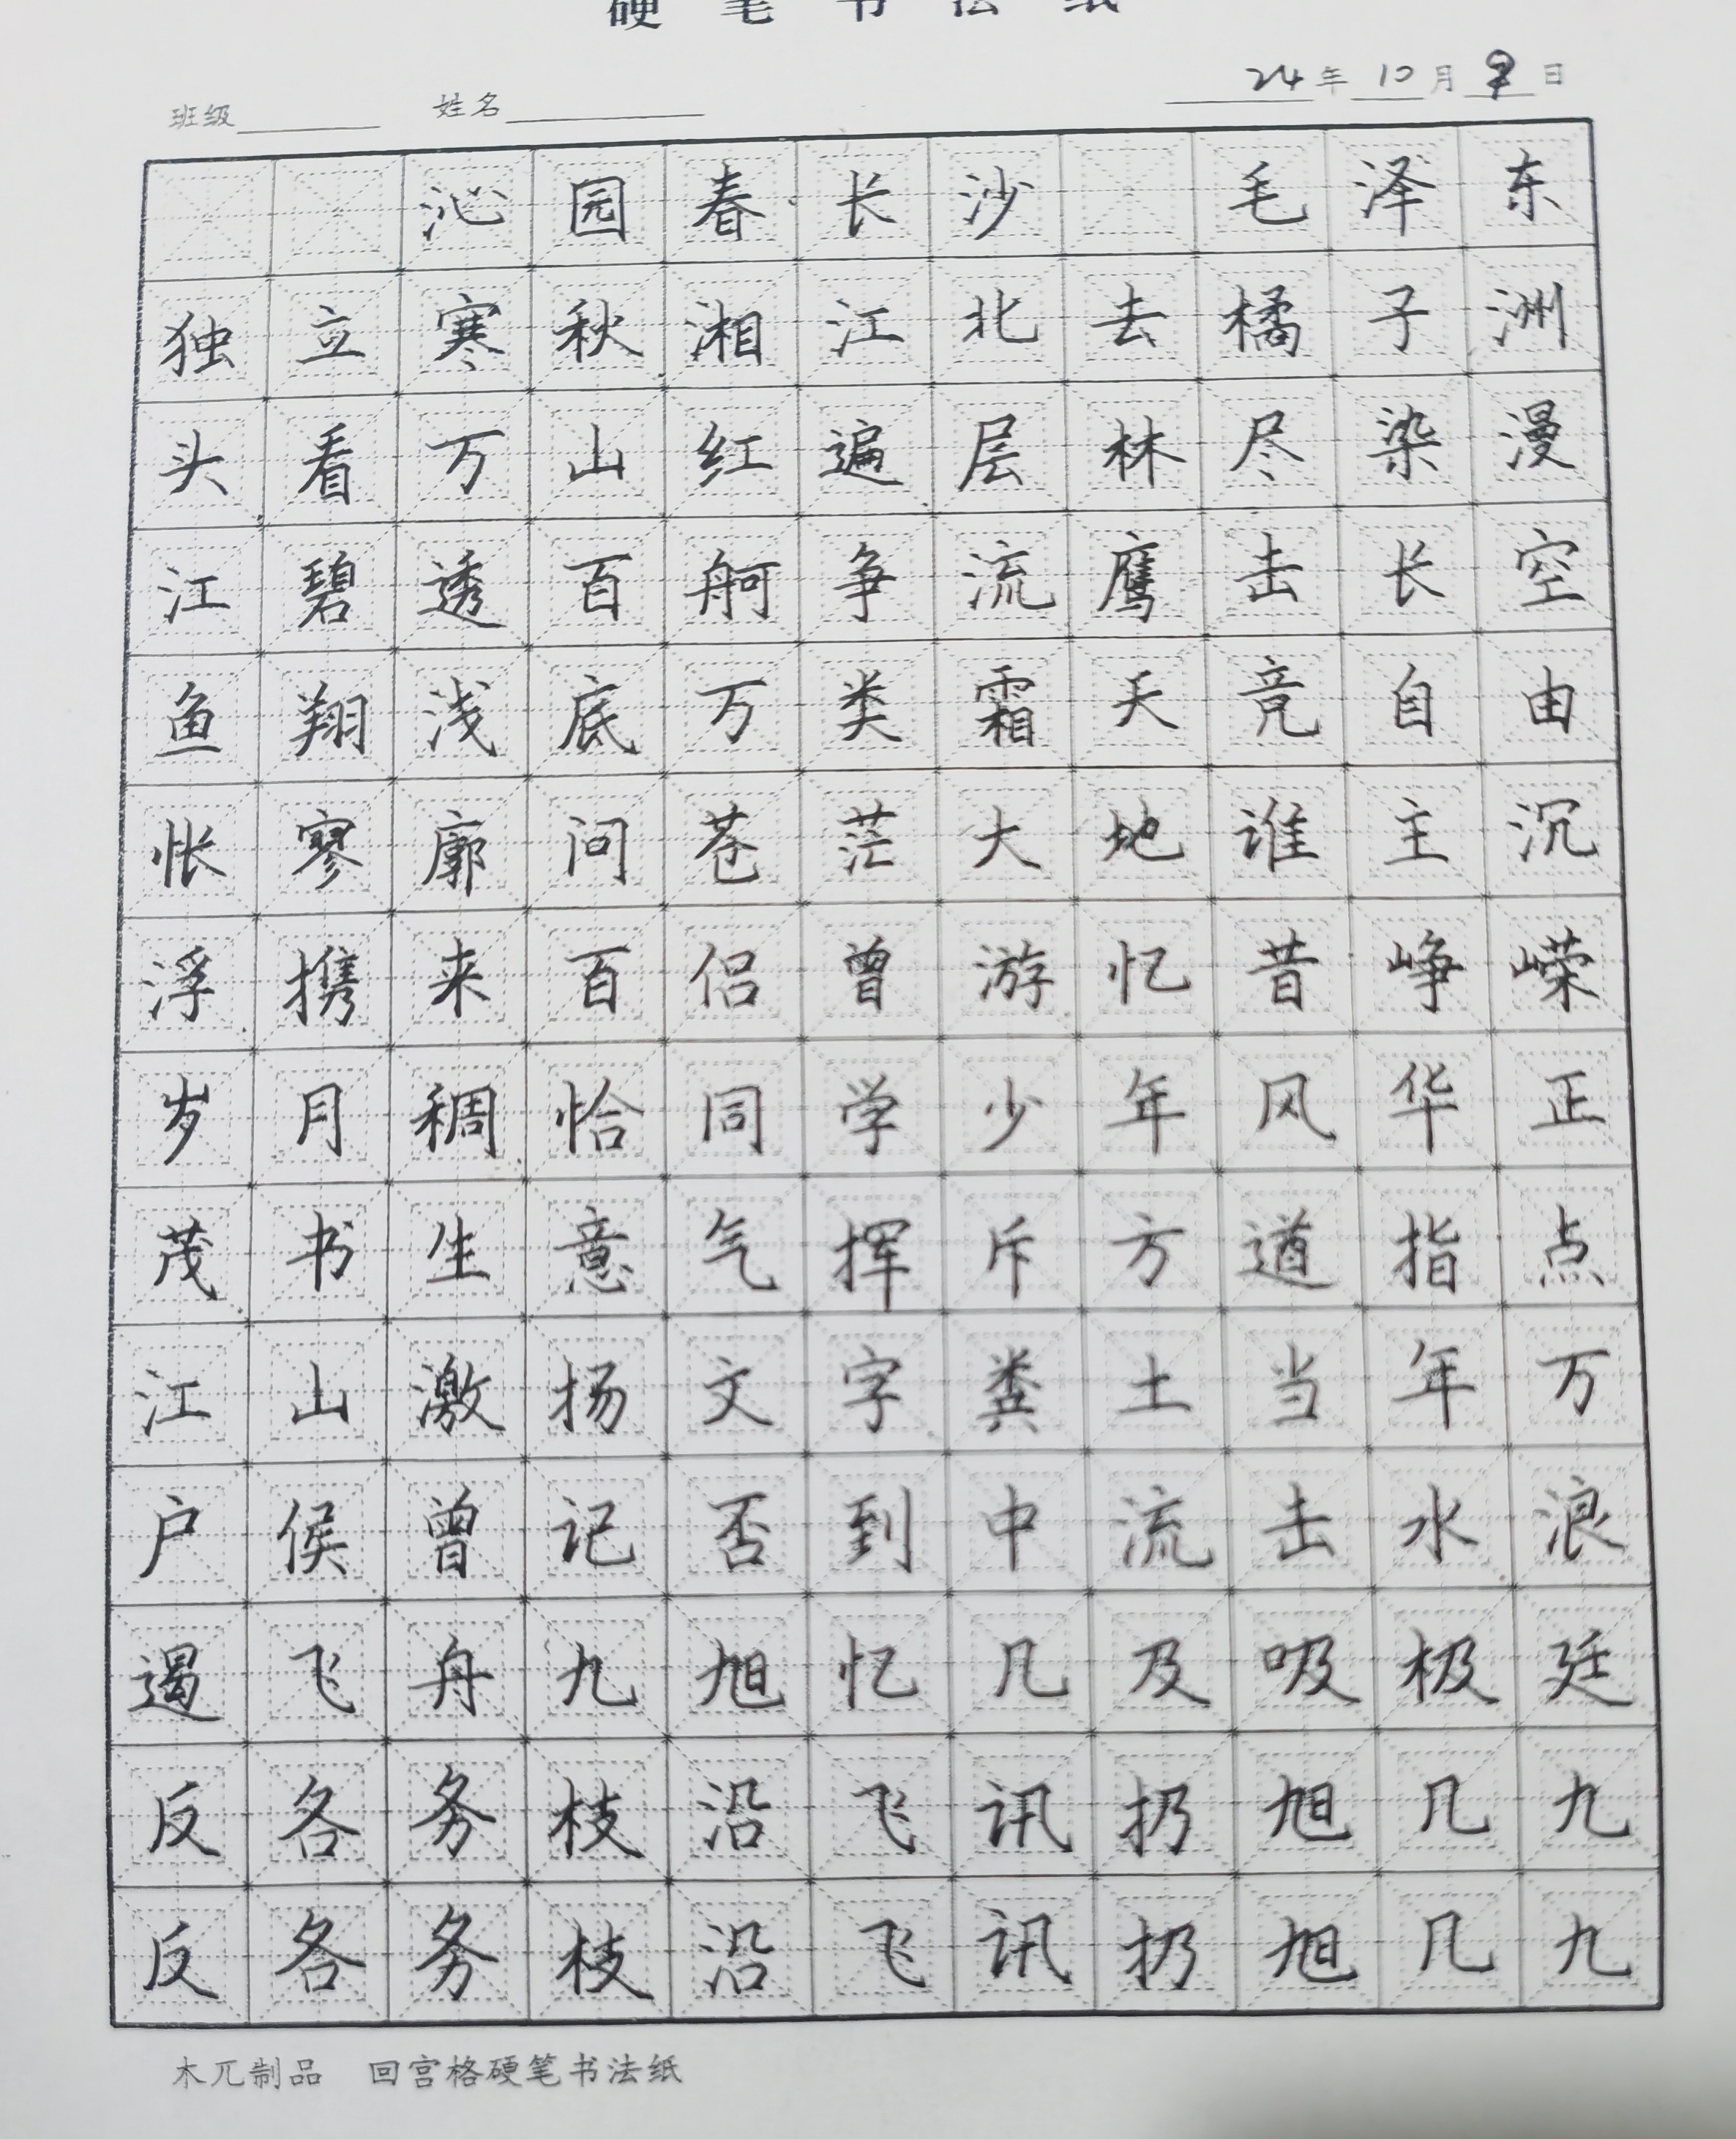 硬笔书法纸
班级 姓名 24年10月 日
沁园春·长沙 毛泽东
独立寒秋湘江北去橘子洲
头看万山红遍层林尽染漫
江碧透百舸争流鹰击长空
鱼翔浅底万类霜天竞自由
怅寥廓问苍茫大地谁主沉
浮携来百侣曾游忆昔峥嵘
岁月稠恰同学少年风华正
茂书生意气挥斥方遒指点
江山激扬文字粪土当年万
户侯曾记否到中流击水浪
遏飞舟九旭忆几及吸极廷
反各务枝沿飞讯扔旭几九
反各务枝沿飞讯扔旭几九
木兀制品 回宫格硬笔书法纸